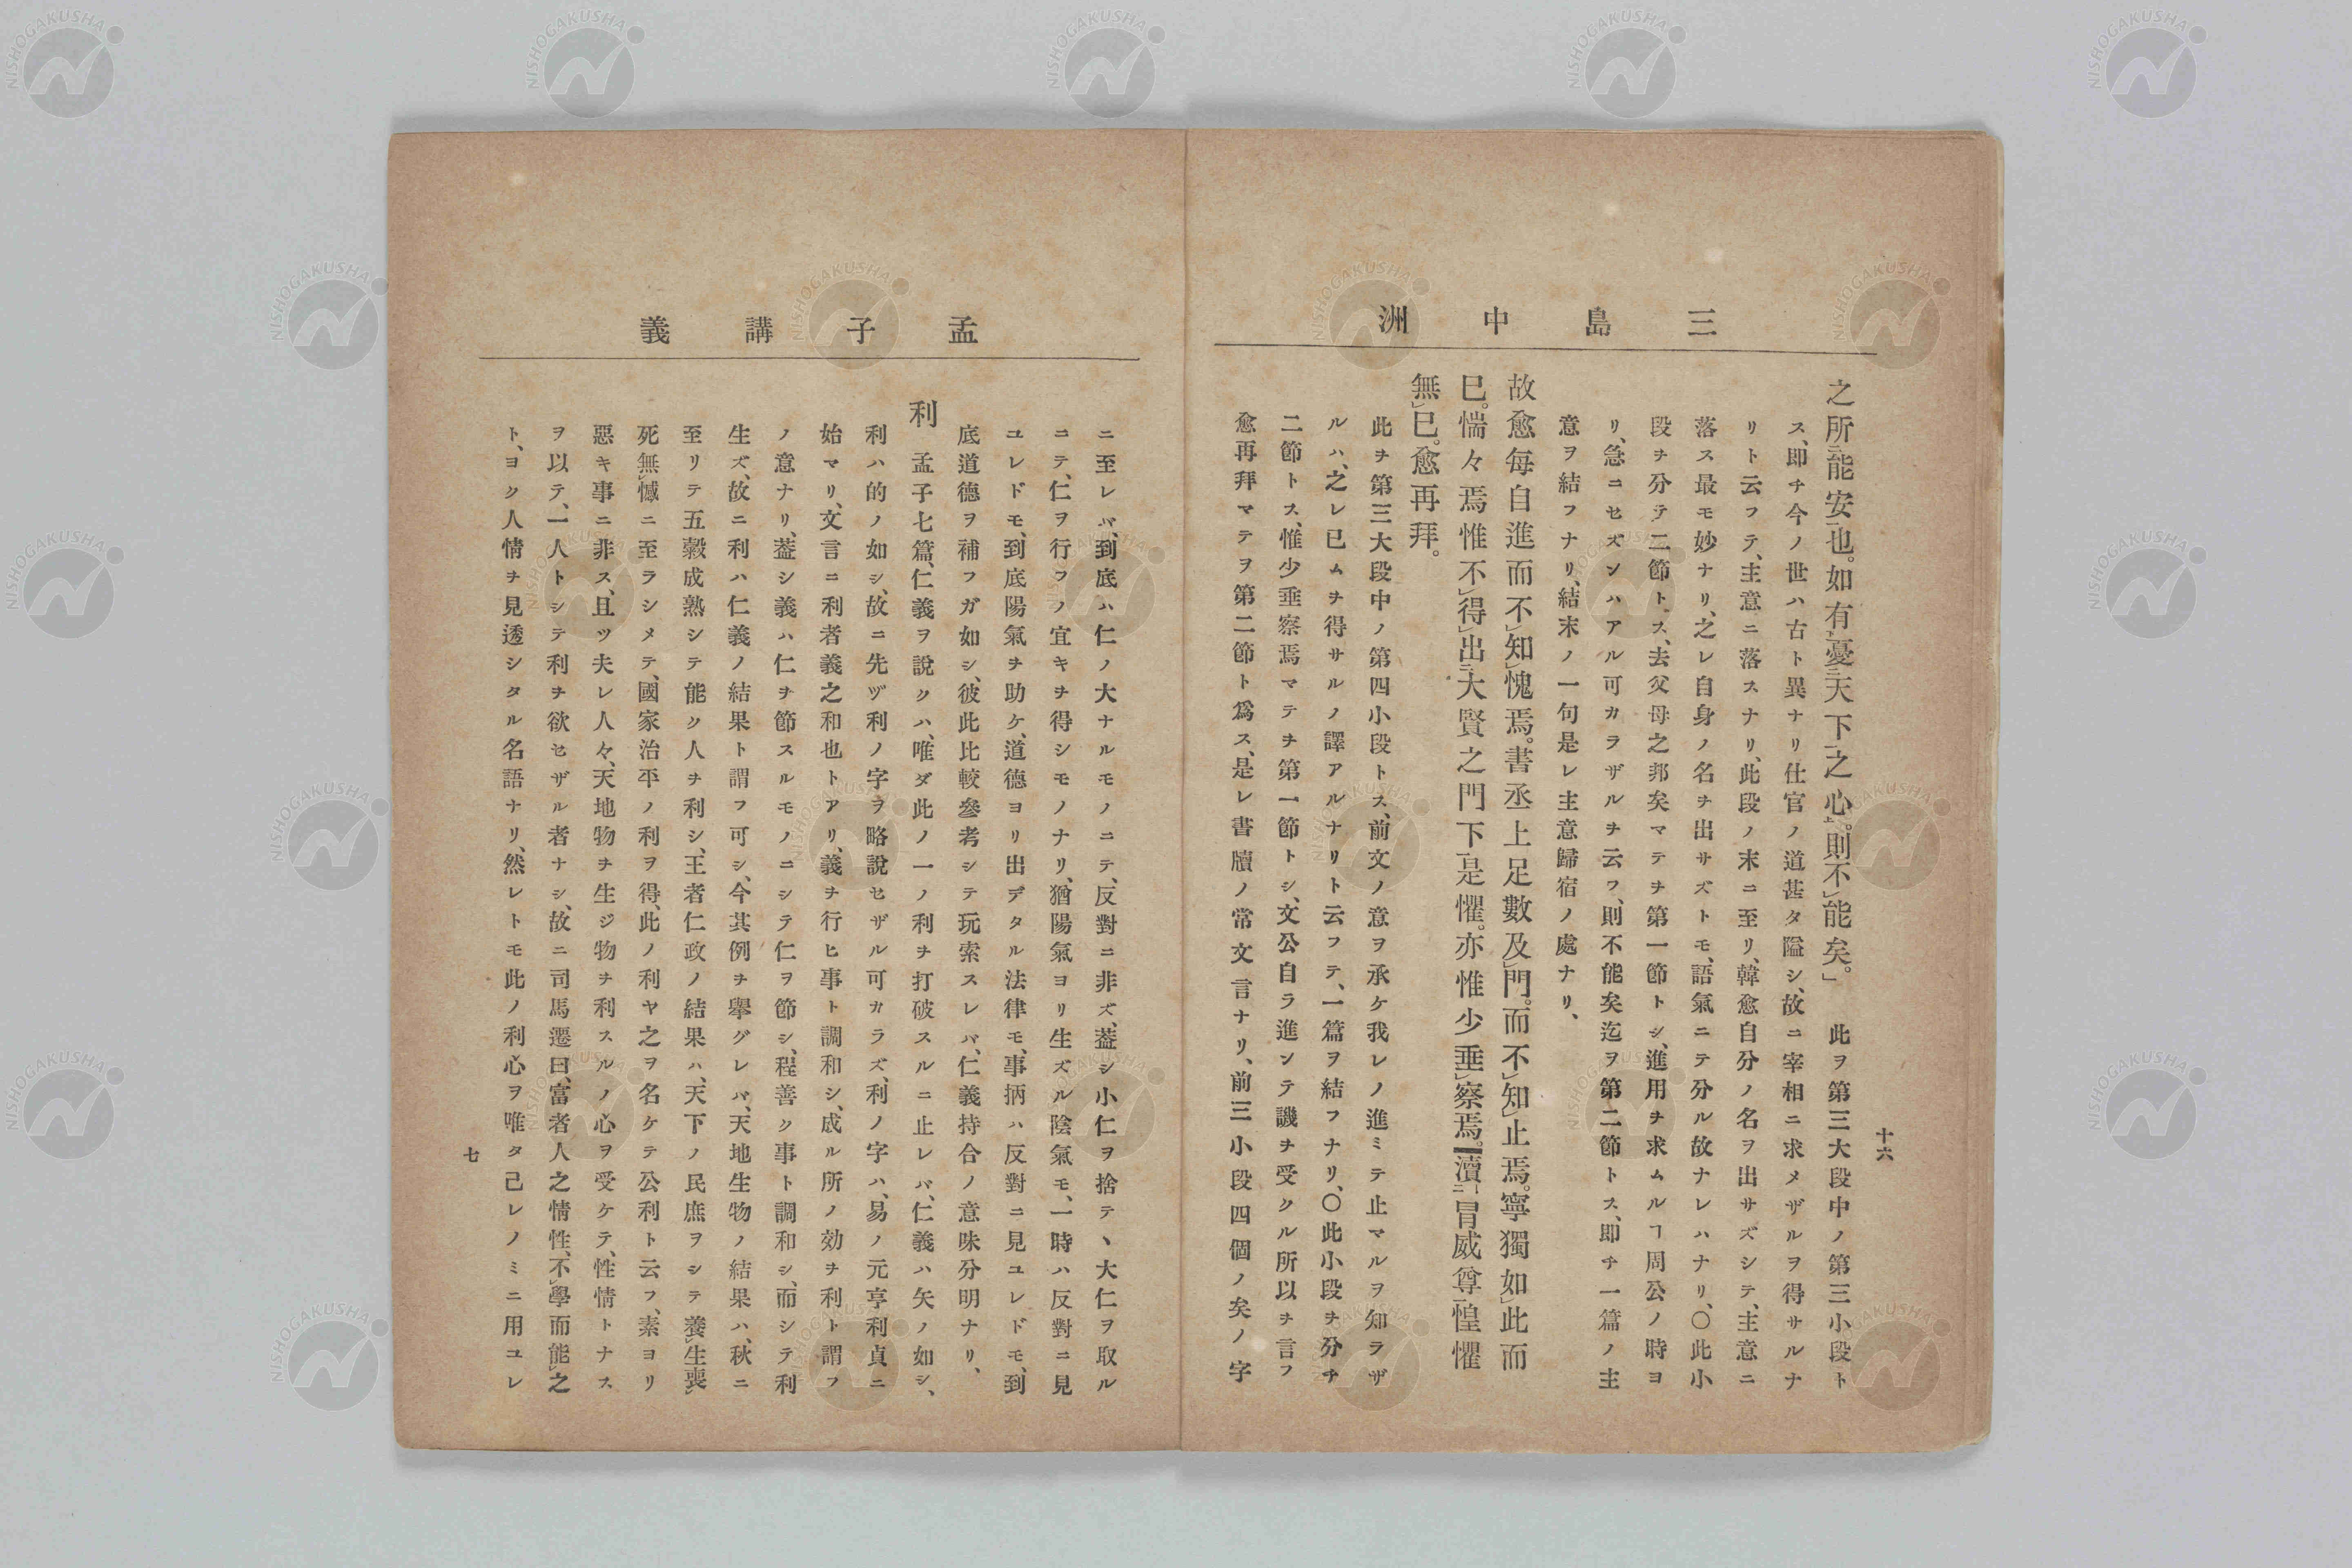 三島中洲
十六
之所能安也。如有憂天下之心。則不能矣。」 此ヲ第三大段中ノ第三小段ト
ス、即チ今ノ世ハ古ト異ナリ仕官ノ道甚タ隘シ、故ニ宰相ニ求メザルヲ得サルナ
リト云フテ、主意ニ落スナリ、此段ノ末ニ至リ、韓愈自分ノ名ヲ出サズシテ、主意ニ
落ス最モ妙ナリ、之レ自身ノ名チ出サズトモ、語氣ニテ分ル故ナレハナリ、〇此小
段チ分テ二節トス、去父母之邦矣マテチ第一節トシ、進用チ求ムルヿ周公ノ時ヨ
リ、急ニセズンハアル可カラザルチ云フ、則不能矣迄ヲ第二節トス、即チ一篇ノ主
意ヲ結フナリ、結末ノ一句是レ主意歸宿ノ處ナリ、
故愈毎自進而不知愧焉。書丞上足數及門。而不知止焉。寧獨如此而
已。惴々焉惟不得出大賢之門下是懼。亦惟少垂察焉。瀆冒威尊惶懼
無已。愈再拜。
此ヲ第三大段中ノ第四小段トス、前文ノ意ヲ承ケ我レノ進ミテ止マルヲ知ラザ
ルハ、之レ已ムチ得サルノ譯アルナリト云フテ、一篇ヲ結フナリ、〇此小段チ分チ
二節トス、惟少垂察焉マテチ第一節トシ、文公自ラ進ンテ譏チ受クル所以チ言フ
愈再拜マテヲ第二節ト爲ス、是レ書牘ノ常文言ナリ、前三小段四個ノ矣ノ字
孟子講義
ニ至レバ、到底ハ仁ノ大ナルモノニテ、反對ニ非ズ、蓋シ小仁ヲ捨テヽ大仁ヲ取ル
ニテ、仁ヲ行フノ宜キチ得シモノナリ、猶陽氣ヨリ生ズル陰氣モ、一時ハ反對ニ見
ユレドモ、到底陽氣チ助ケ、道德ヨリ出デタル法律モ、事柄ハ反對ニ見ユレドモ、到
底道德ヲ補フガ如シ、彼此比較參考シテ玩索スレバ、仁義持合ノ意味分明ナリ、
利 孟子七篇、仁義ヲ說クハ、唯ダ此ノ一ノ利チ打破スルニ止レバ、仁義ハ矢ノ如シ、
利ハ的ノ如シ、故ニ先ヅ利ノ字ヲ略說セザル可カラズ、利ノ字ハ、易ノ元亨利貞ニ
始マリ、文言ニ利者義之和也トアリ、義チ行ヒ事ト調和シ、成ル所ノ効チ利ト謂フ
ノ意ナリ、蓋シ義ハ仁チ節スルモノニシテ仁ヲ節シ、程善ク事ト調和シ、而シテ利
生ズ、故ニ利ハ仁義ノ結果ト謂フ可シ、今其例チ擧グレバ、天地生物ノ結果ハ、秋ニ
至リテ五穀成熟シテ能ク人チ利シ、王者仁政ノ結果ハ、天下ノ民庶ヲシテ養生喪
死無憾ニ至ラシメテ、國家治平ノ利ヲ得、此ノ利ヤ之ヲ名ケテ公利ト云フ、素ヨリ
惡キ事ニ非ス、且ツ夫レ人々、天地物チ生ジ物チ利スルノ心ヲ受ケテ、性情トナス
ヲ以テ、一人トシテ利チ欲セザル者ナシ、故ニ司馬遷曰、富者人之情性、不學而能之
ト、ヨク人情チ見透シタル名語ナリ、然レトモ此ノ利心ヲ唯タ己レノミニ用ユレ
七